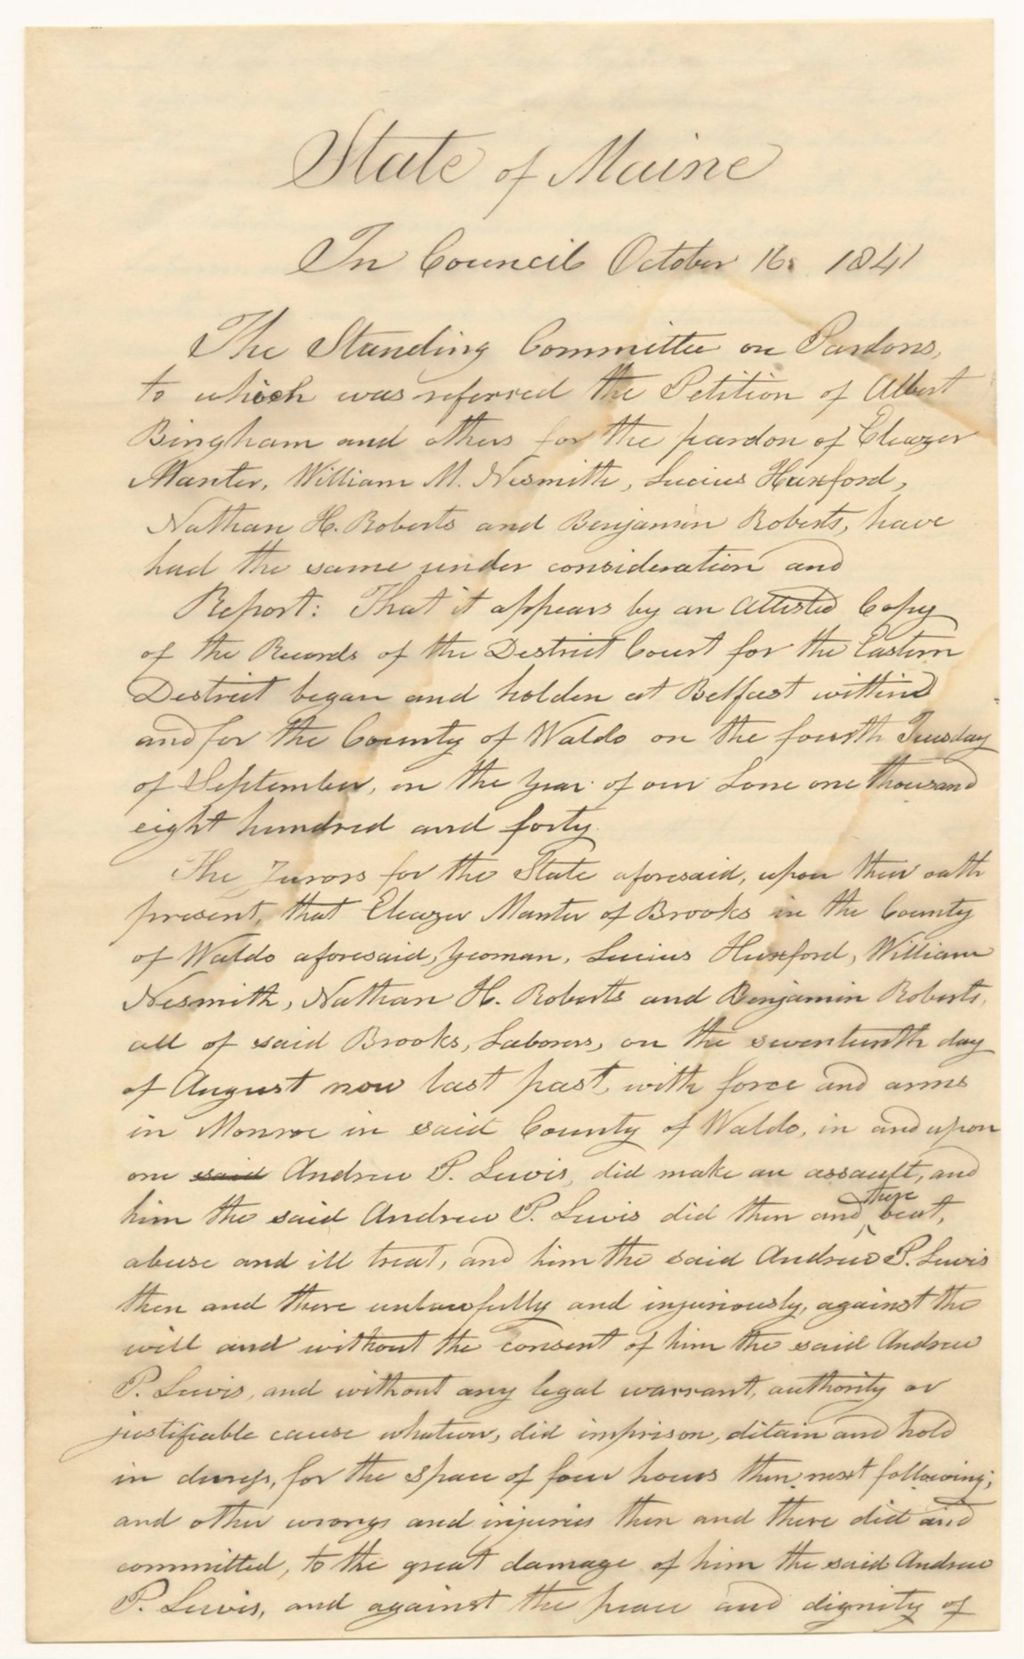 State of Maine
In Council October 16. 1841
The Standing Committee on Pardons,
to which was referred the Petition of Albert
Bingham and others for the pardon of Eleazer
Manter, William M. Nesmith, Lucius Huxford,
Nathan H. Roberts and Benjamin Roberts, have
had the same under consideration and
Report: That it appears by an Attested Copy
of the Records of the District Court for the Eastern
District began and holden at Belfast within
and for the County of Waldo on the fourth Tuesday
of September, in the year of our Lord one thousand
eight hundred and forty.
The Jurors for the State aforesaid, upon their oath
present, that Eleazer Manter of Brooks in the County
of Waldo aforesaid, yeoman, Lucius Huxford, William
Nesmith, Nathan H. Roberts and Benjamin Roberts,
all of said Brooks, Laborers, on the seventeenth day
of August now last past, with force and arms
in Monroe in said County of Waldo, in and upon
one said Andrew P. Lewis, did make an assault, and
him the said Andrew P. Lewis did then and there beat,
abuse and ill treat, and him the said Andrew P. Lewis
then and there unlawfully and injuriously, against the
will and without the consent of him the said Andrew
P. Lewis, and without any legal warrant, authority or
justifiable cause whatever, did imprison, ditain and hold
in duress, for the space of four hours then next following;
and other wrongs and injuries then and there did and
committed, to the great damage of him the said Andrew
P. Lewis, and against the peace and dignity of